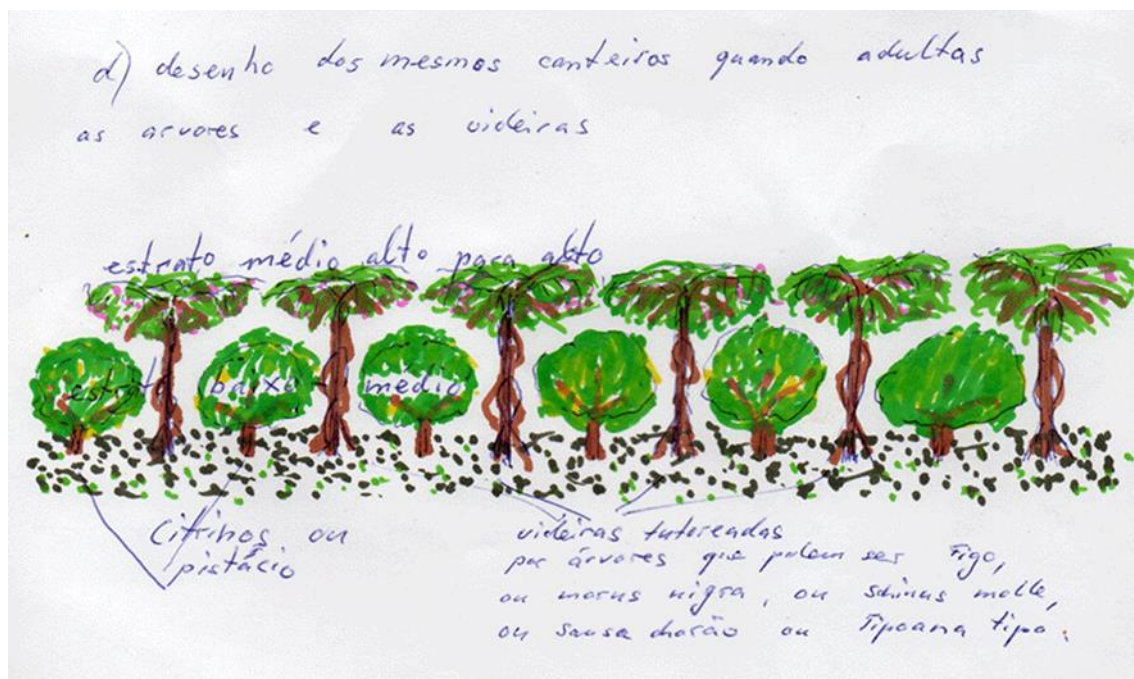 d) desenho dos mesmos canteiros quando adultas
as arvores e as videiras
estrato médio alto para alto
estrato baixo - médio
Citrinos ou
pistácio
videiras tutoreadas
por árvores que podem ser Figo,
ou morus nigra, ou schinus molle,
ou sausa chorão ou Tipoana tipo.